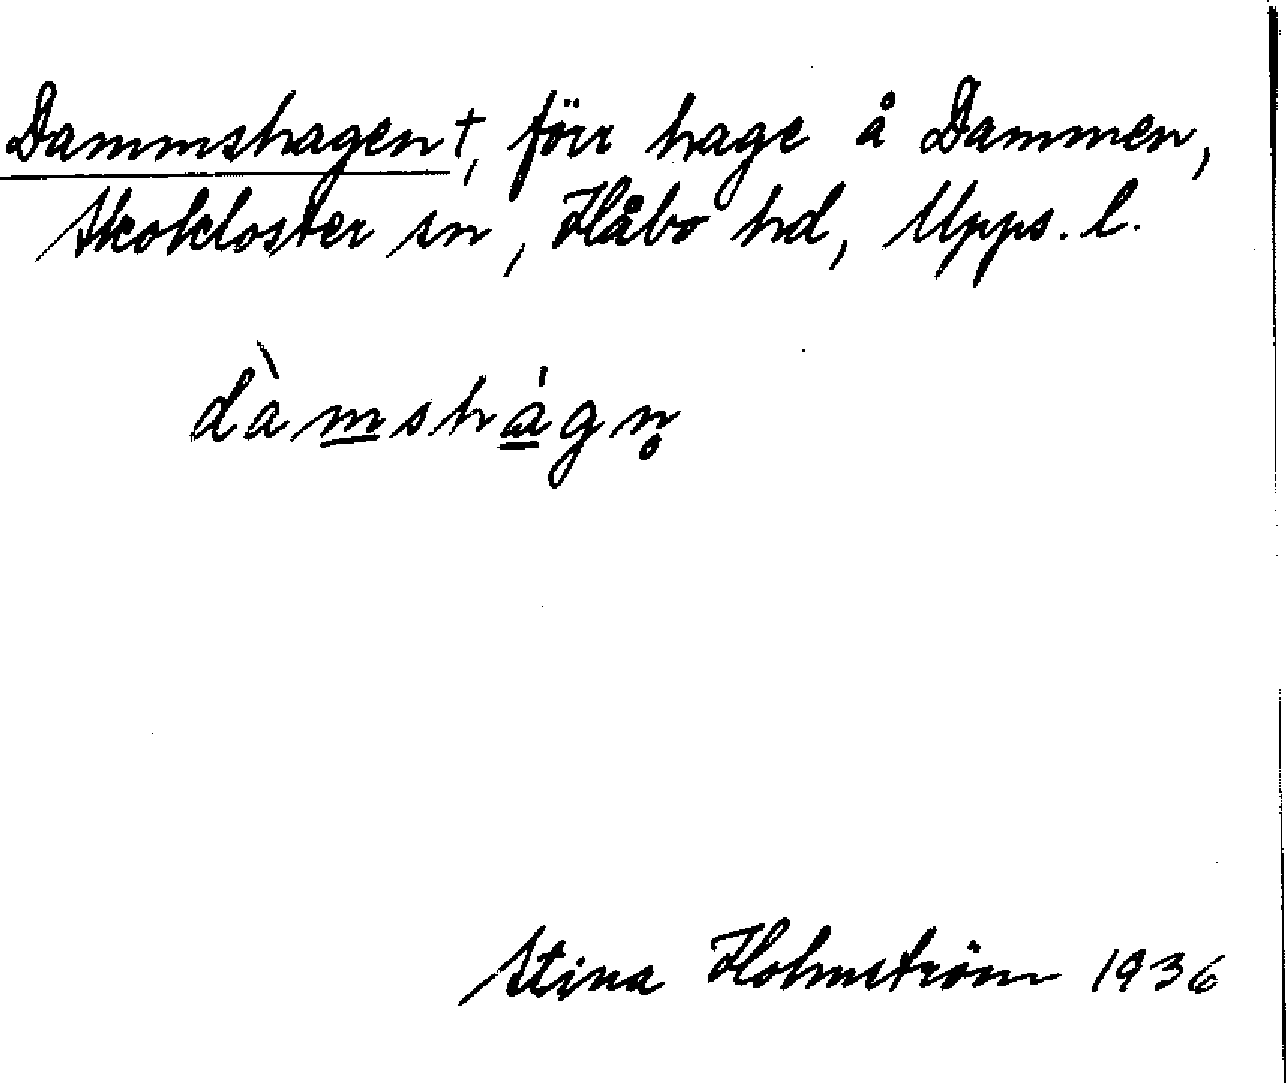 Dammshagen †, förr hage å Dammen,
Skokloster sn, Håbo hd, Upps. l.
dàmshágn̥
Stina Holmström 1936